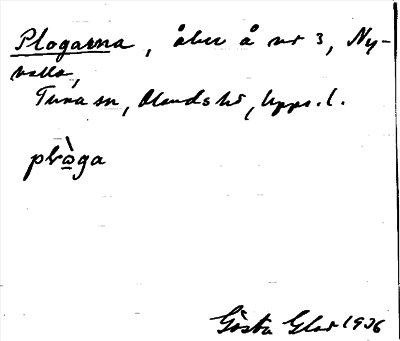 Plogarna, åker å nr 3, Ny-
valla,
Tuna sn, Olands hd, Upps. l.
plò̱ga
Gösta Glad 1936